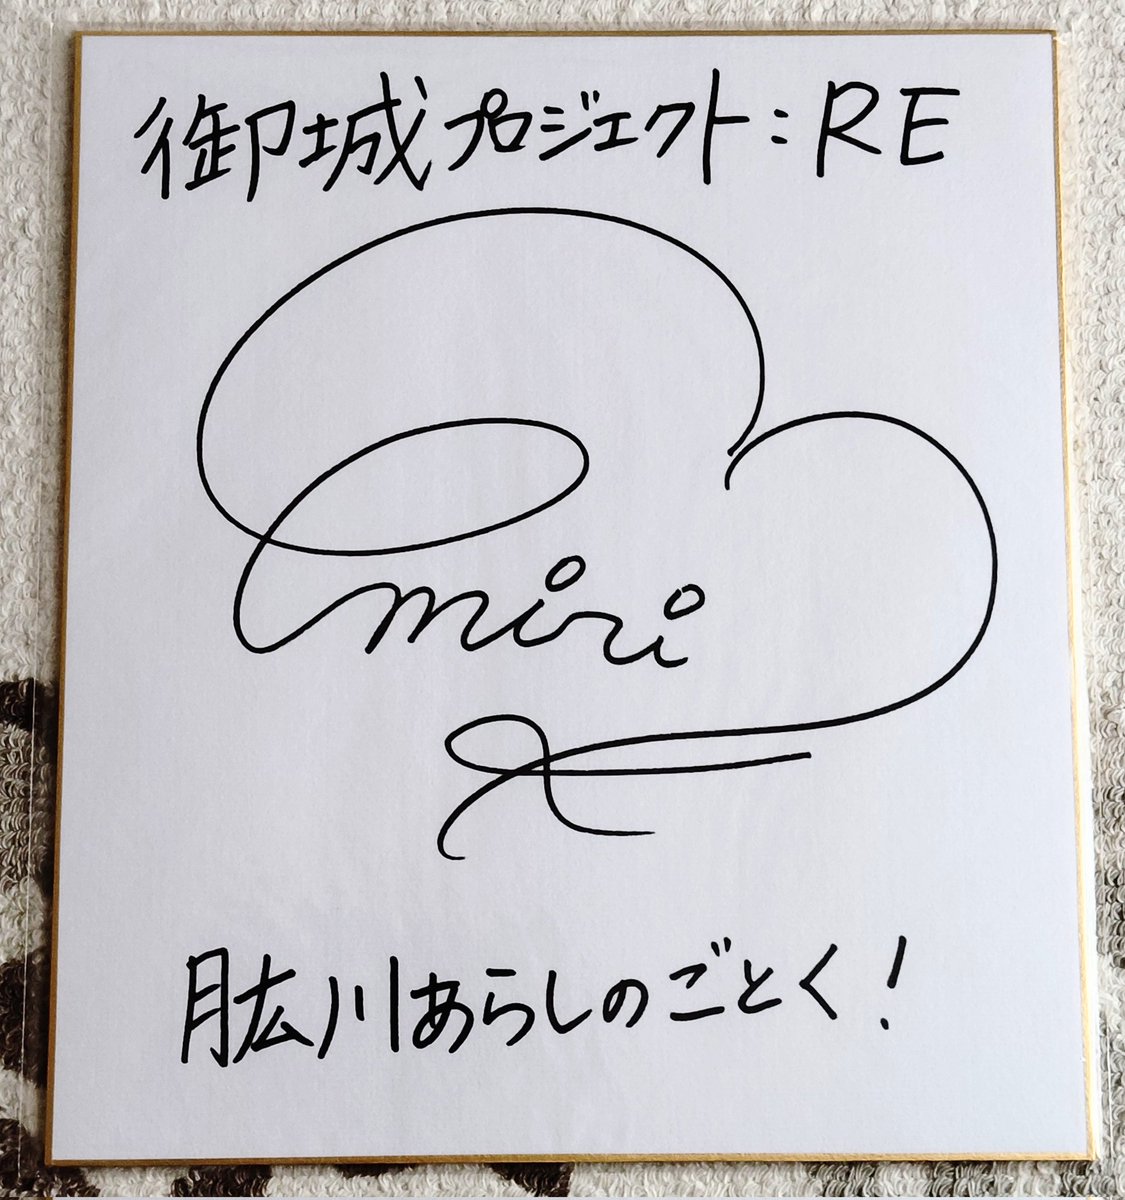 御城プロジェクト:RE
miri
肱川あらしのごとく!